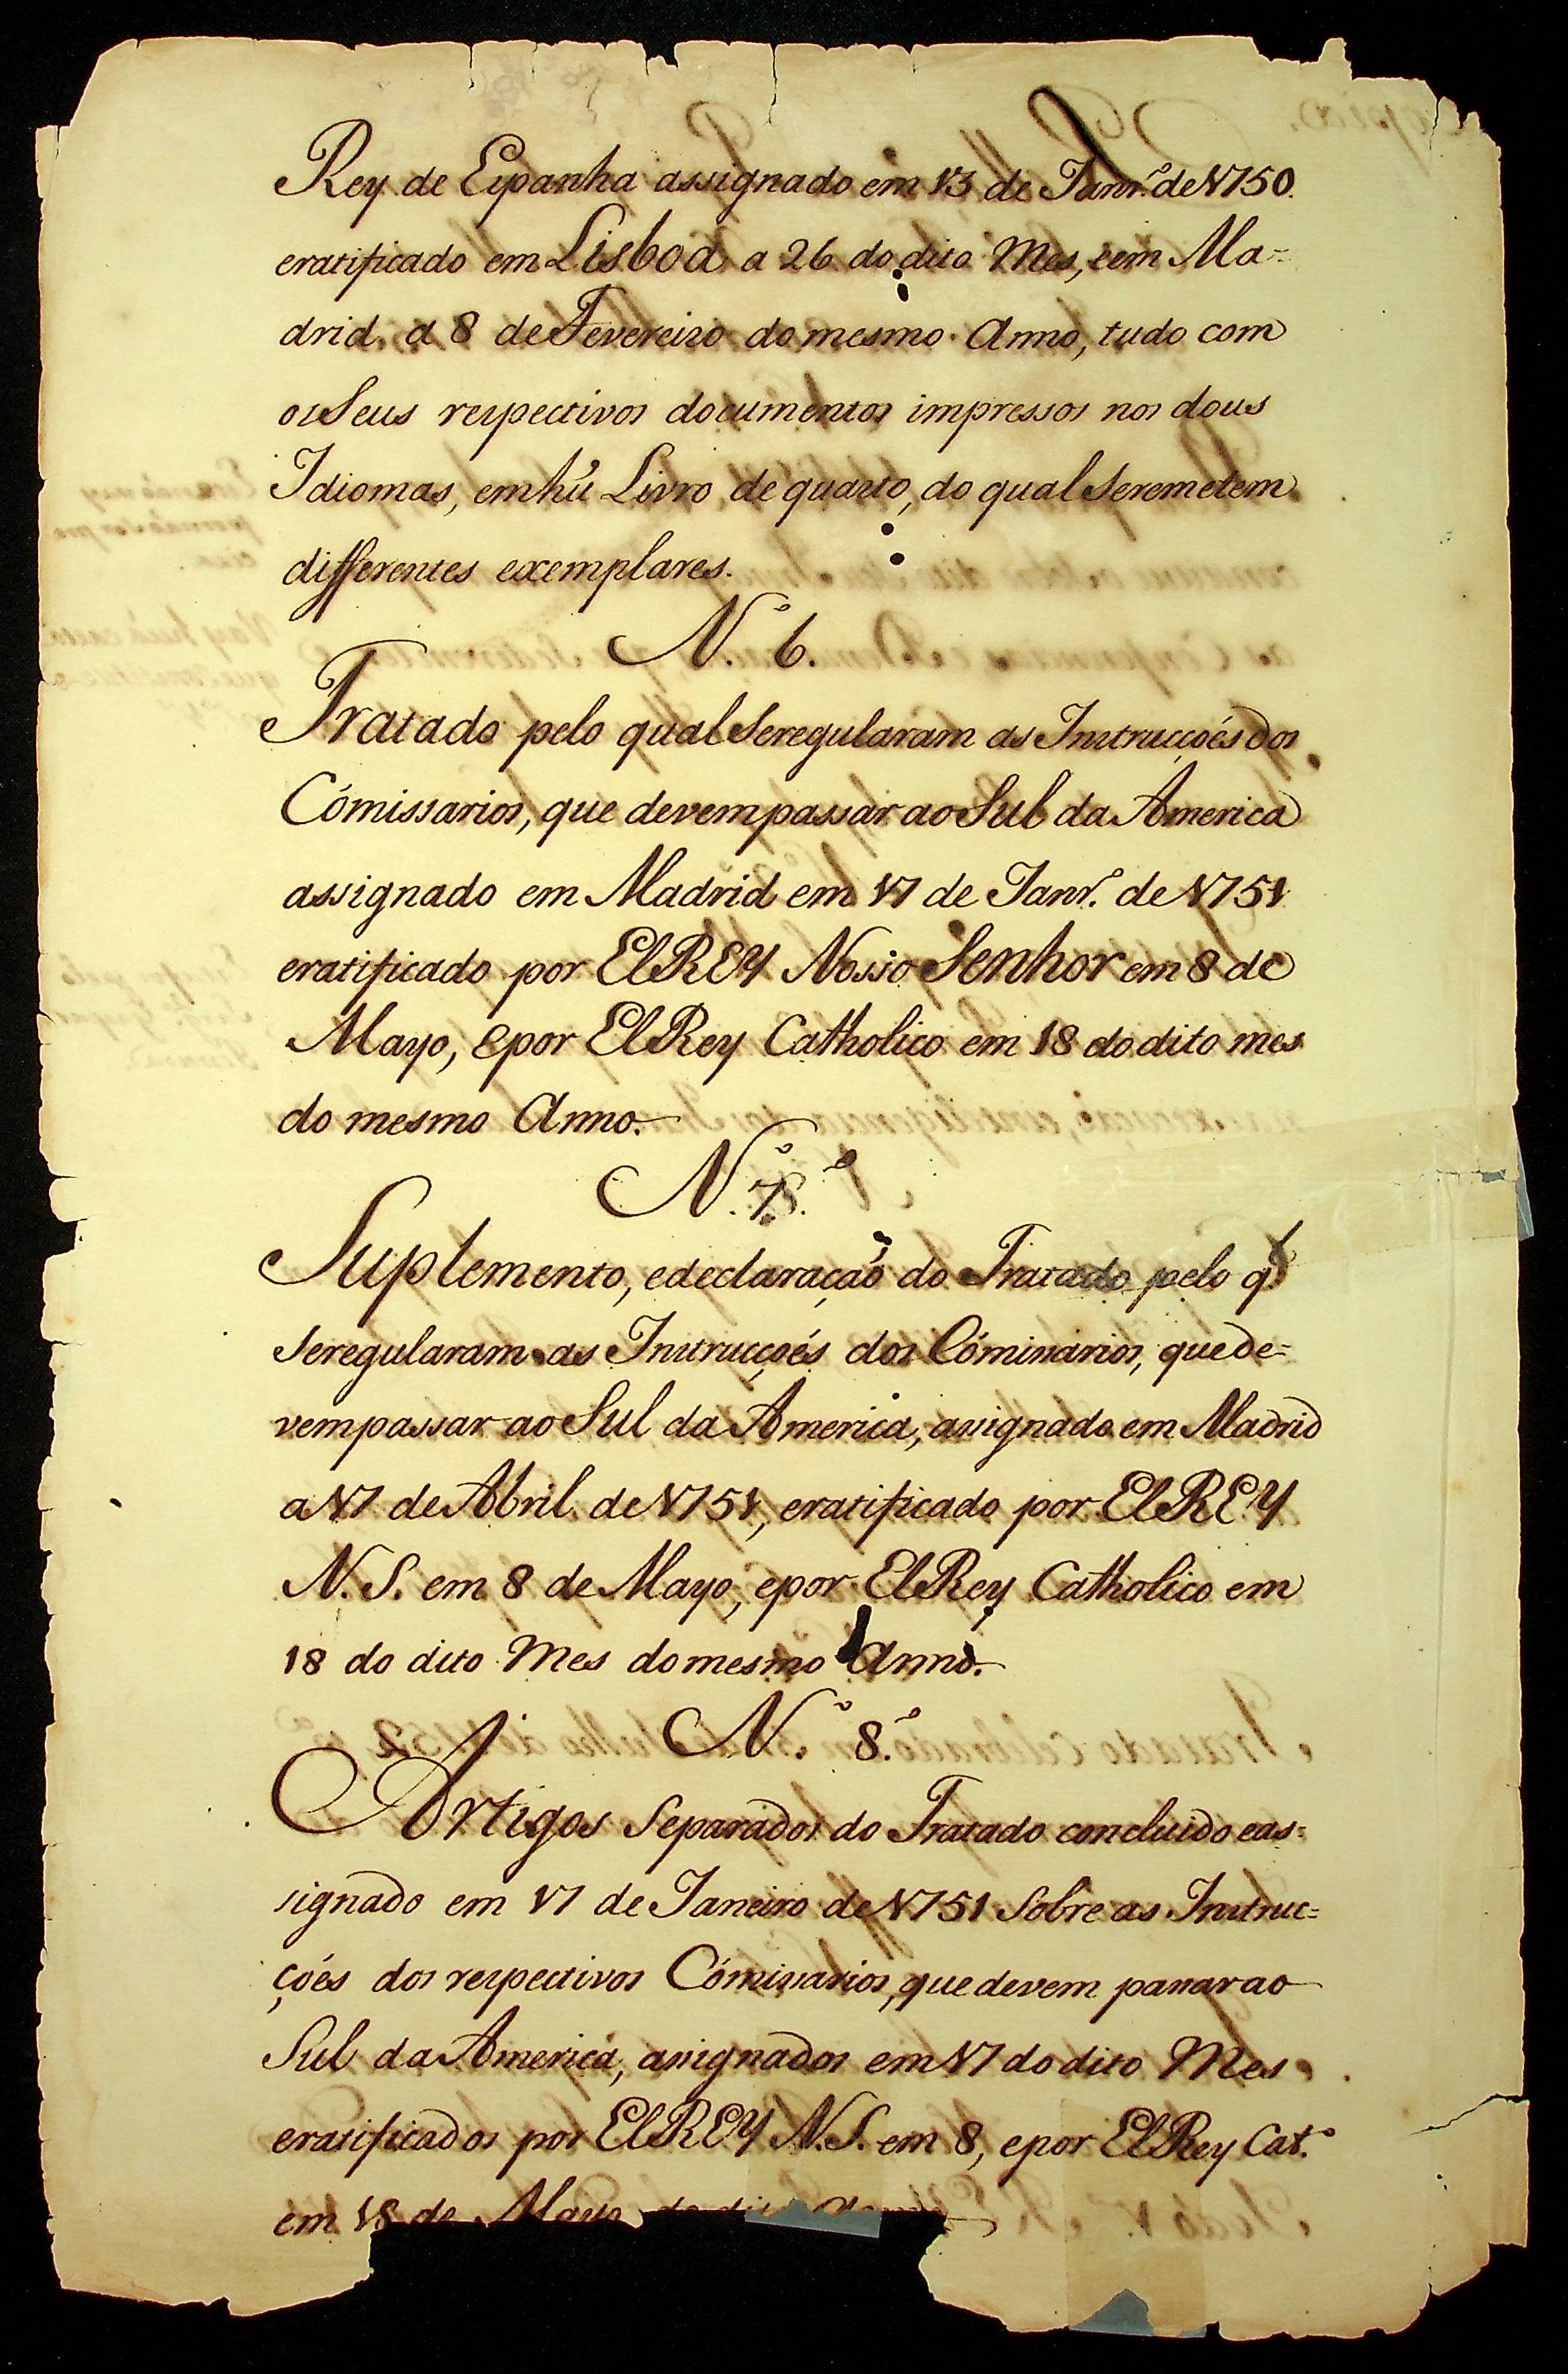 Rey de Espanha assignado em 13 de Janr.º de 1750.
eratificado em Lisboa a 26 do dito Mes, eem Ma=
drid a 8 de Fevereiro do mesmo Anno, tudo com
os Seus respectivos documentos impressos nos dous
Idiomas, em hũ Livro de quarto, do qual Seremetem
differentes exemplares.
N.º 6.
Tratado pelo qual Seregularam as Instrucçoẽs dos
Cõmissarios, que devem passar ao Sul da America
assignado em Madrid em 17 de Janr.º de 1751
eratificado por ElREY Nosso Senhor em 8 de
Mayo, epor ElRey Catholico em 18 do dito mes
do mesmo Anno.
N.º 7.º
Suplemento, edeclaraçaõ do Tratado pelo ql
Seregularam as Instrucçoẽs dos Cõmissarios, que de=
vem passar ao Sul da America, assignado em Madrid
a 17 de Abril de 1751, eratificado por ElREY
N. S. em 8 de Mayo, epor ElRey Catholico em
18 do dito Mes do mesmo Anno.
N.º 8.º
Artigos Separados do Tratado concluido eas=
signado em 17 de Janeiro de 1751 Sobre as Instruc=
çoẽs dos respectivos Cõmissarios, que devem passar ao
Sul da America, assignados em 17 do dito Mes
eratificados por ElREY N. S. em 8, epor ElRey Cat.º
em 18 de Mayo do dito Anno